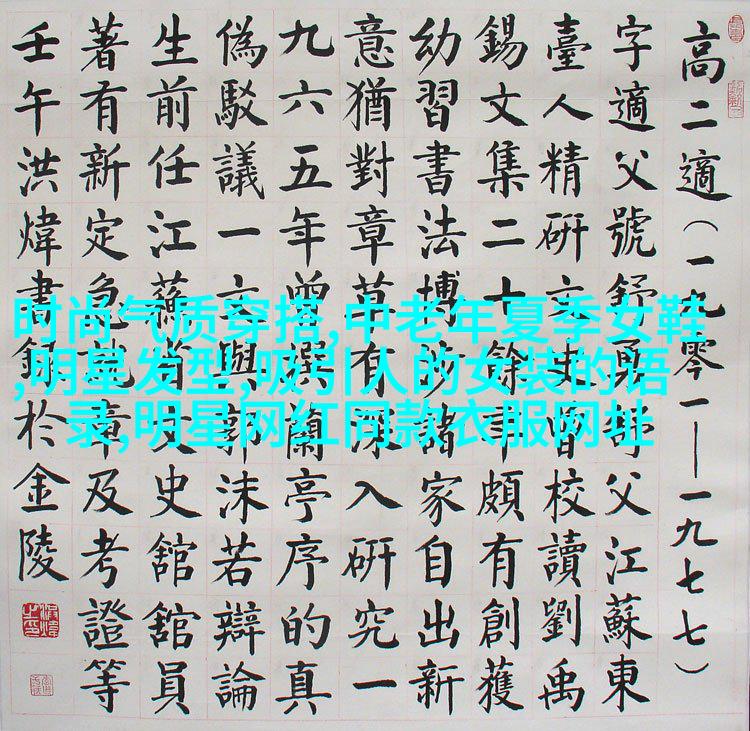 高二適（一九零一——一九七七）
字適父號舒舒父江蘇東
臺人精研文史曾校讀劉禹
錫文集二十餘年頗有創獲
幼習書法博涉諸家自出新
意猶對章草有深入研究一
九六五年曾撰蘭亭序的真
偽駁議一文與郭沫若辯論
生前任江蘇省文史舘舘員
著有新定急就章及考證等
壬午洪煒書録於金陵
时尚气质穿搭,中老年夏季女鞋
,明星发型,吸引人的女装的语
录,明星网红同款衣服网址